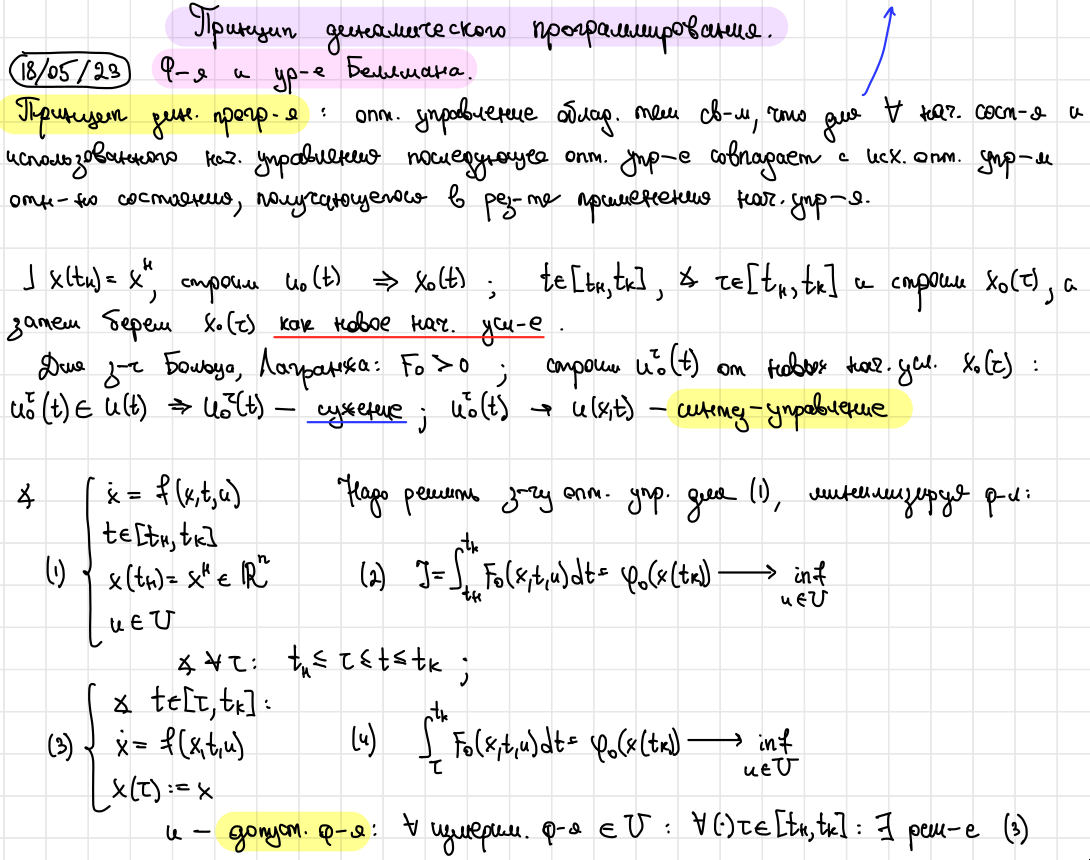 Принцип динамического программирования.
18/05/23 Ф-я и ур-е Беллмана.
Принцип дин. прогр-я : опт. управление облад. тем св-м, что для ∀ нач. сост-я и
использованного нач. управления последующее опт. упр-е совпадает с исх. опт. упр-м
отн-но состояния, получающегося в рез-те применения нач. упр-я.
] x(tн) = xᴴ, строим u₀(t) ⇒ x₀(t) ; t∈[tн, tк], ∡ τ∈[tн, tк] и строим x₀(τ), а
затем берем x₀(τ) как новое нач. усл-е.
Для з-ч Больца, Лагранжа: F₀ > 0 ; строим u₀^τ(t) от новых нач. усл. x₀(τ) :
u₀^τ(t) ∈ u(t) ⇒ u₀^τ(t) – сужение ; u₀^τ(t) → u(x,t) – синтез-управление
∡ { ẋ = f(x,t,u) Надо решить з-чу опт. упр. для (1), минимизируя ф-л:
t∈[tн, tк]
(1) x(tн) = xᴴ ∈ ℝⁿ (2) J = ∫_{tн}^{tк} F₀(x,t,u)dt = φ₀(x(tк)) ⟶ inf u∈U
u∈U
∡ ∀τ : tн ≤ τ ≤ t ≤ tк ;
∡ t∈[τ, tк] :
(3) ẋ = f(x,t,u) (4) ∫_{τ}^{tк} F₀(x,t,u)dt = φ₀(x(tк)) ⟶ inf u∈U
x(τ) := x
u – допуст. ф-я : ∀ измерим. ф-я ∈ U : ∀(·)τ∈[tн, tк] : ∃ реш-е (3)